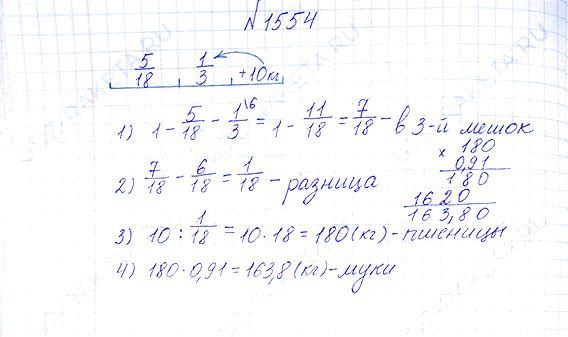 №1554
5/18 1/3 +10кг
1) 1 - 5/18 - 1/3 \6 = 1 - 11/18 = 7/18 - в 3-й мешок
2) 7/18 - 6/18 = 1/18 - разница
× 180
0,91
180
1620
163,80
3) 10 : 1/18 = 10 · 18 = 180 (кг) - пшеницы
4) 180 · 0,91 = 163,8 (кг) - муки